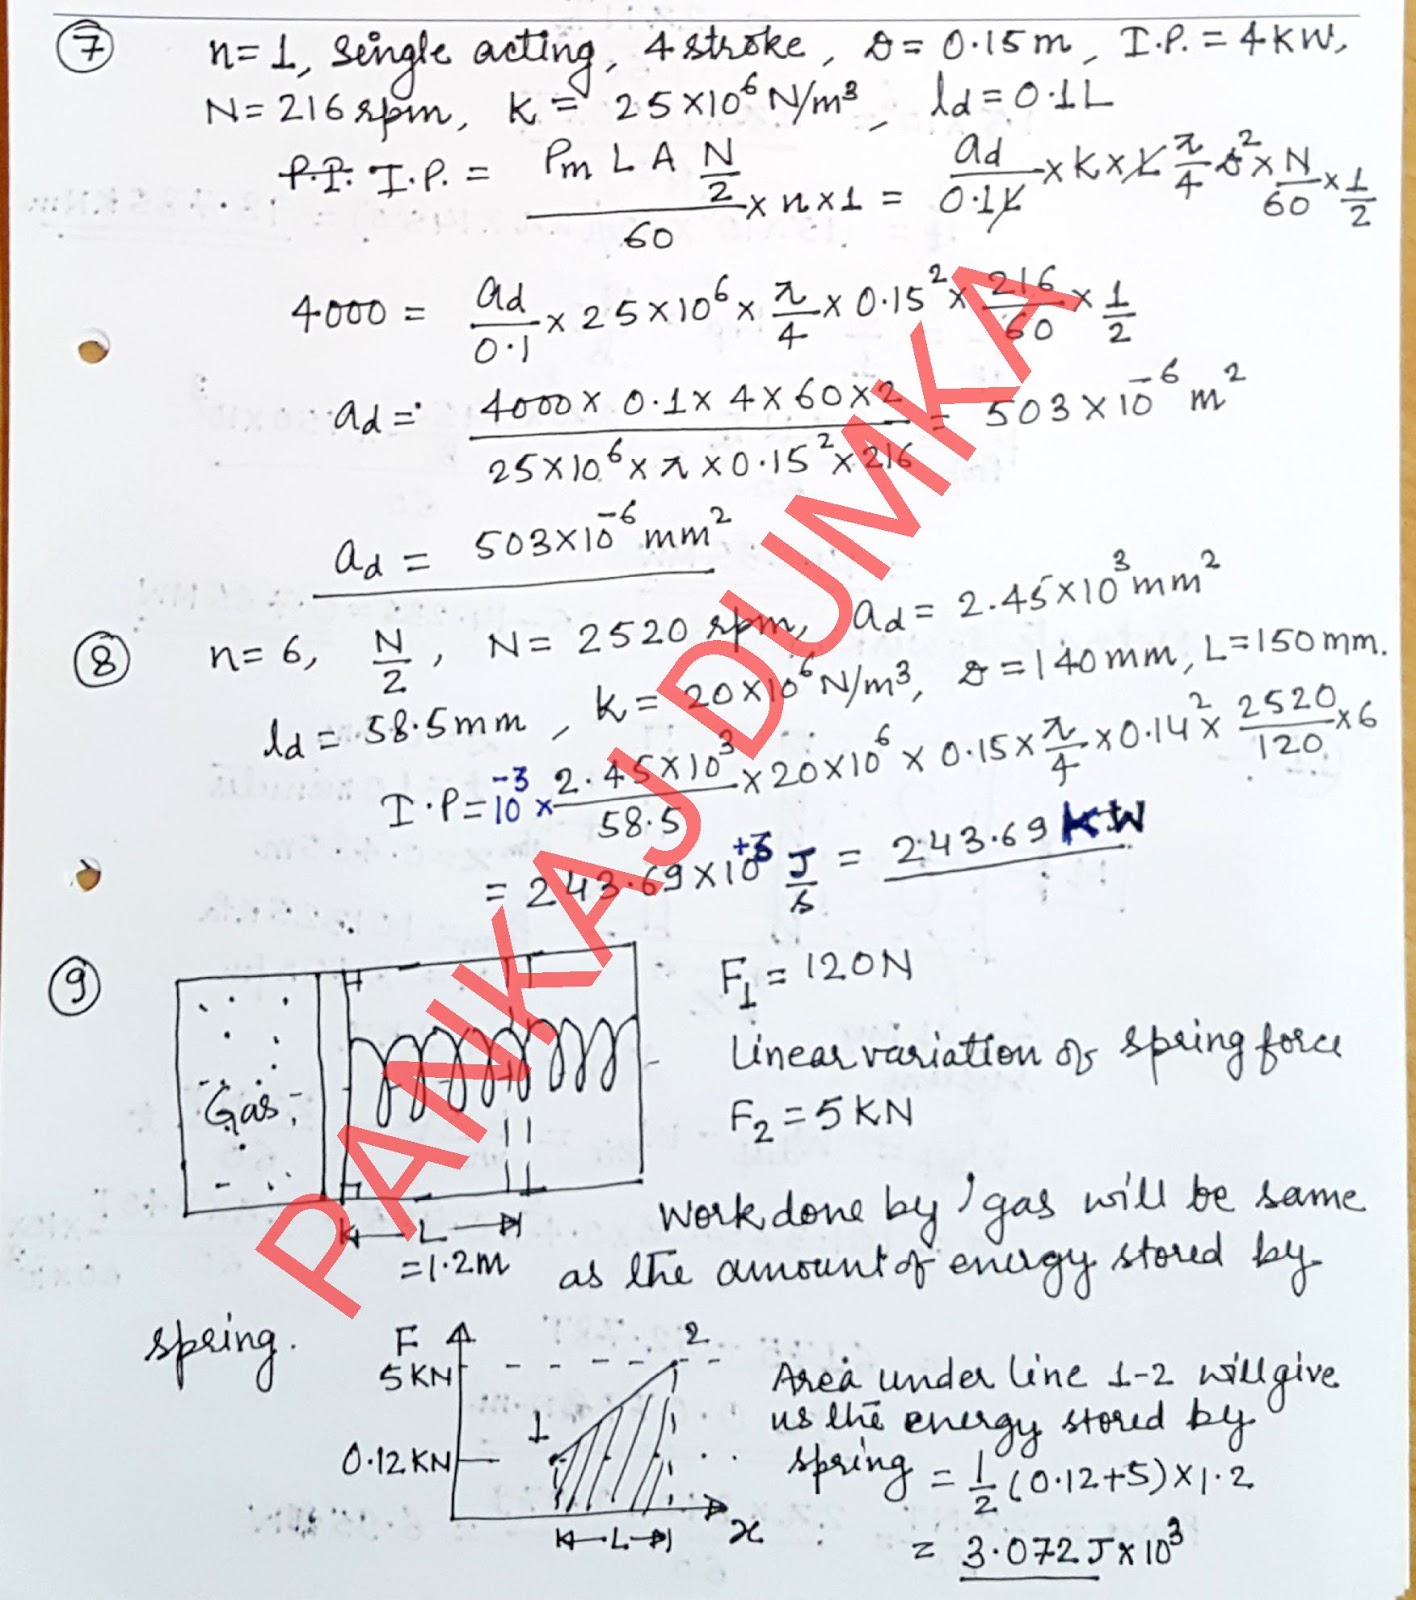 7 n=1, single acting, 4 stroke, D=0.15m, I.P.=4KW,
N=216 rpm, K= 25×10⁶ N/m³, ld=0.1L
P.I. I.P. = Pm L A N/2 / 60 × n×1 = ad/0.1L × K × L π/4 D² × N/60 × 1/2
4000 = ad/0.1 × 25×10⁶ × π/4 × 0.15² × 216/60 × 1/2
ad = 4000× 0.1× 4×60×2 / 25×10⁶×π×0.15²×216 = 503×10⁻⁶ m²
ad = 503×10⁻⁶ mm²
8 n=6, N/2, N= 2520 rpm, ad= 2.45×10³ mm²
ld = 58.5mm, K= 20×10⁶ N/m³, D=140mm, L=150mm.
I.P=10⁻³ × 2.45×10³/58.5 × 20×10⁶ × 0.15× π/4 ×0.14² × 2520/120 ×6
= 243.69×10⁺³ J/s = 243.69 KW
9 F1 = 120N
Linear variation of spring force
Gas
F2=5KN
L
=1.2m
Work done by gas will be same
as the amount of energy stored by
spring.
F
5KN
2
1
0.12KN
L
x
Area under line 1-2 will give
us the energy stored by
spring = 1/2 (0.12+5)×1.2
= 3.072 J×10³
PANKAJ DUMKA